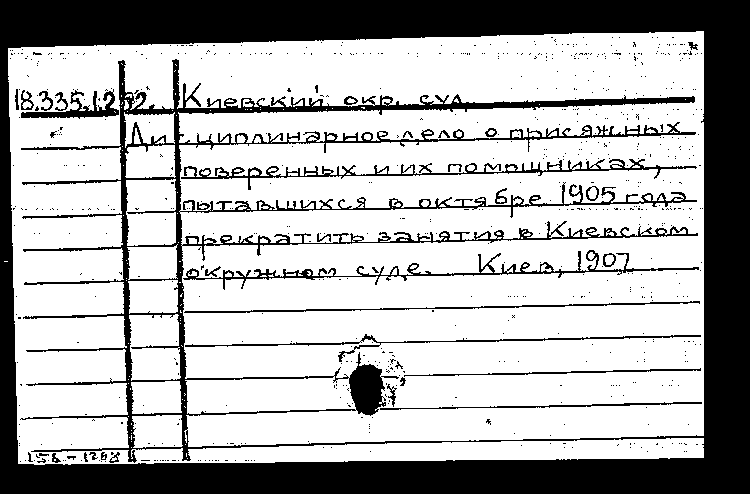 18.335.1.252. Киевский окр. суд.
Дисциплинарное дело о присяжных
поверенных и их помощниках,
пытавшихся в октябре 1905 года
прекратить занятия в Киевском
окружном суде. Киев, 1907